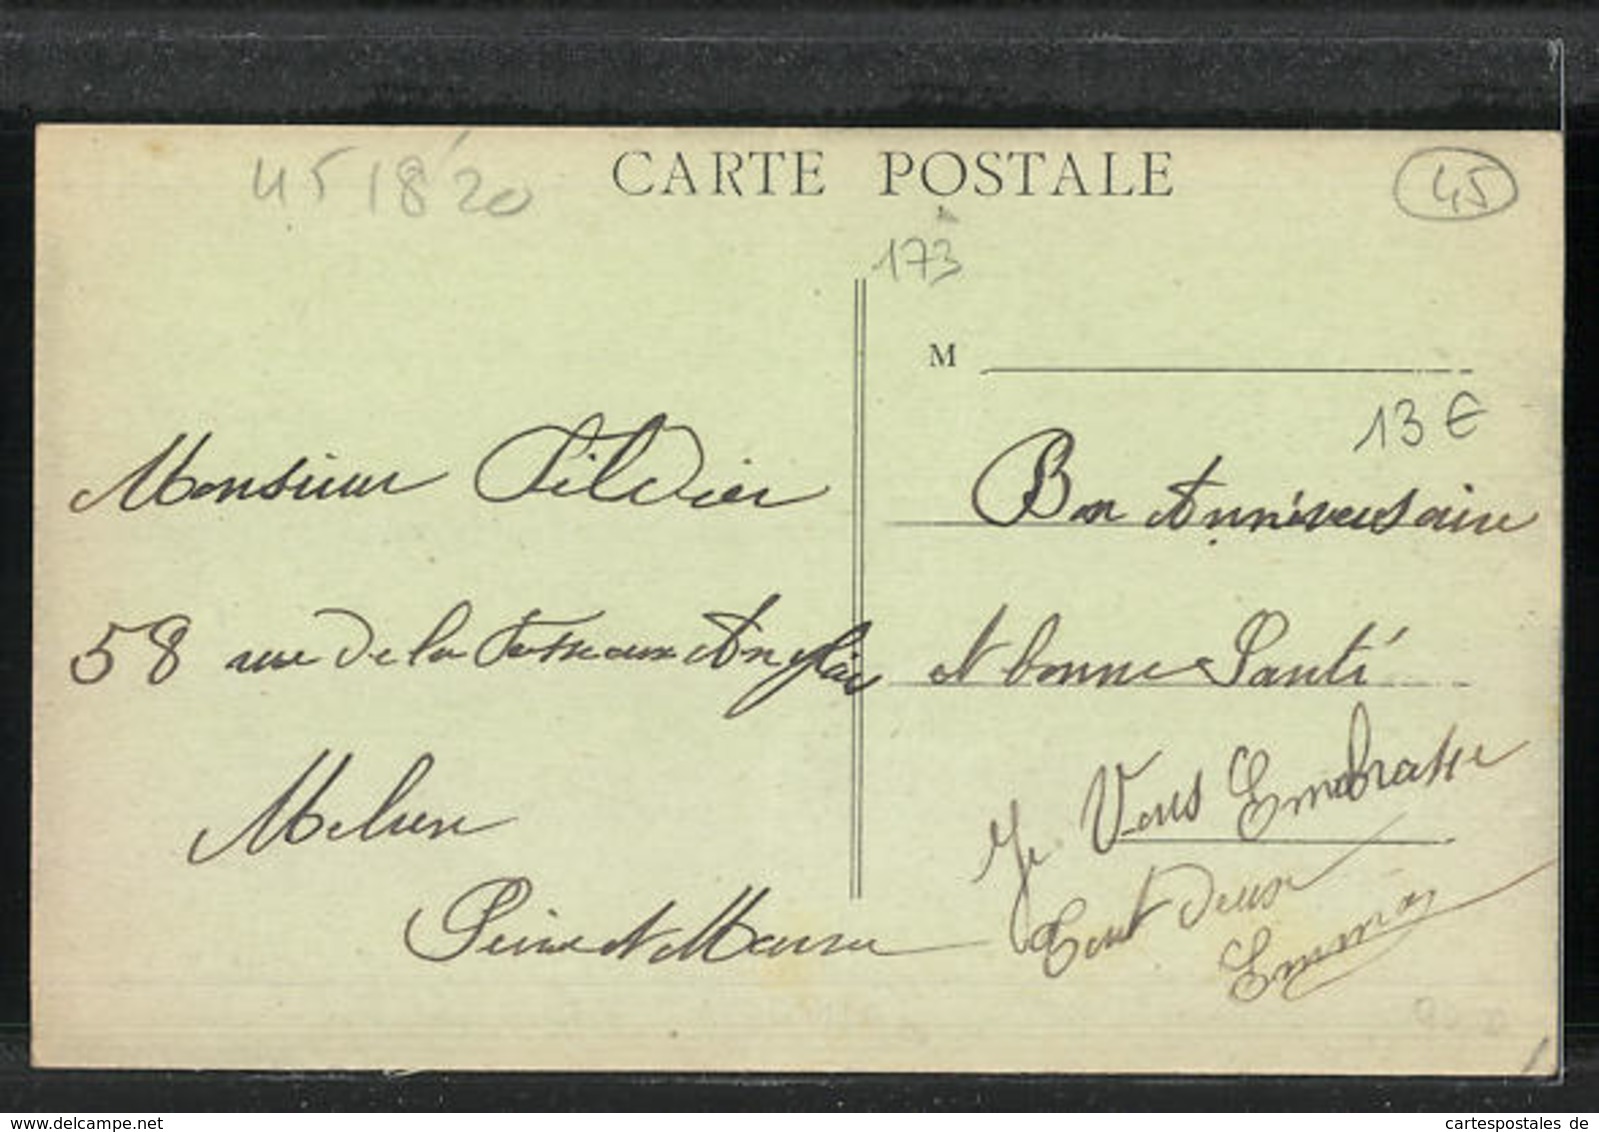 45 18 20
CARTE POSTALE
45
173
M
13€
Monsieur Silvier
58 rue de la Fosse aux Anglais
Melun
Seine et Marne
Bon Anniversaire
et bonne Santé
Je Vous Embrasse
Tout Deux
Emma
www.delcampe.net
cartespostales de
cartespostales.de